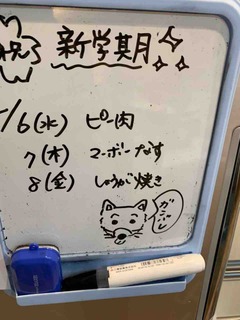 祝う
新学期
/6(水) ピー肉
7(木) マーボーなす
8(金) しょうが焼き
ガンバレ